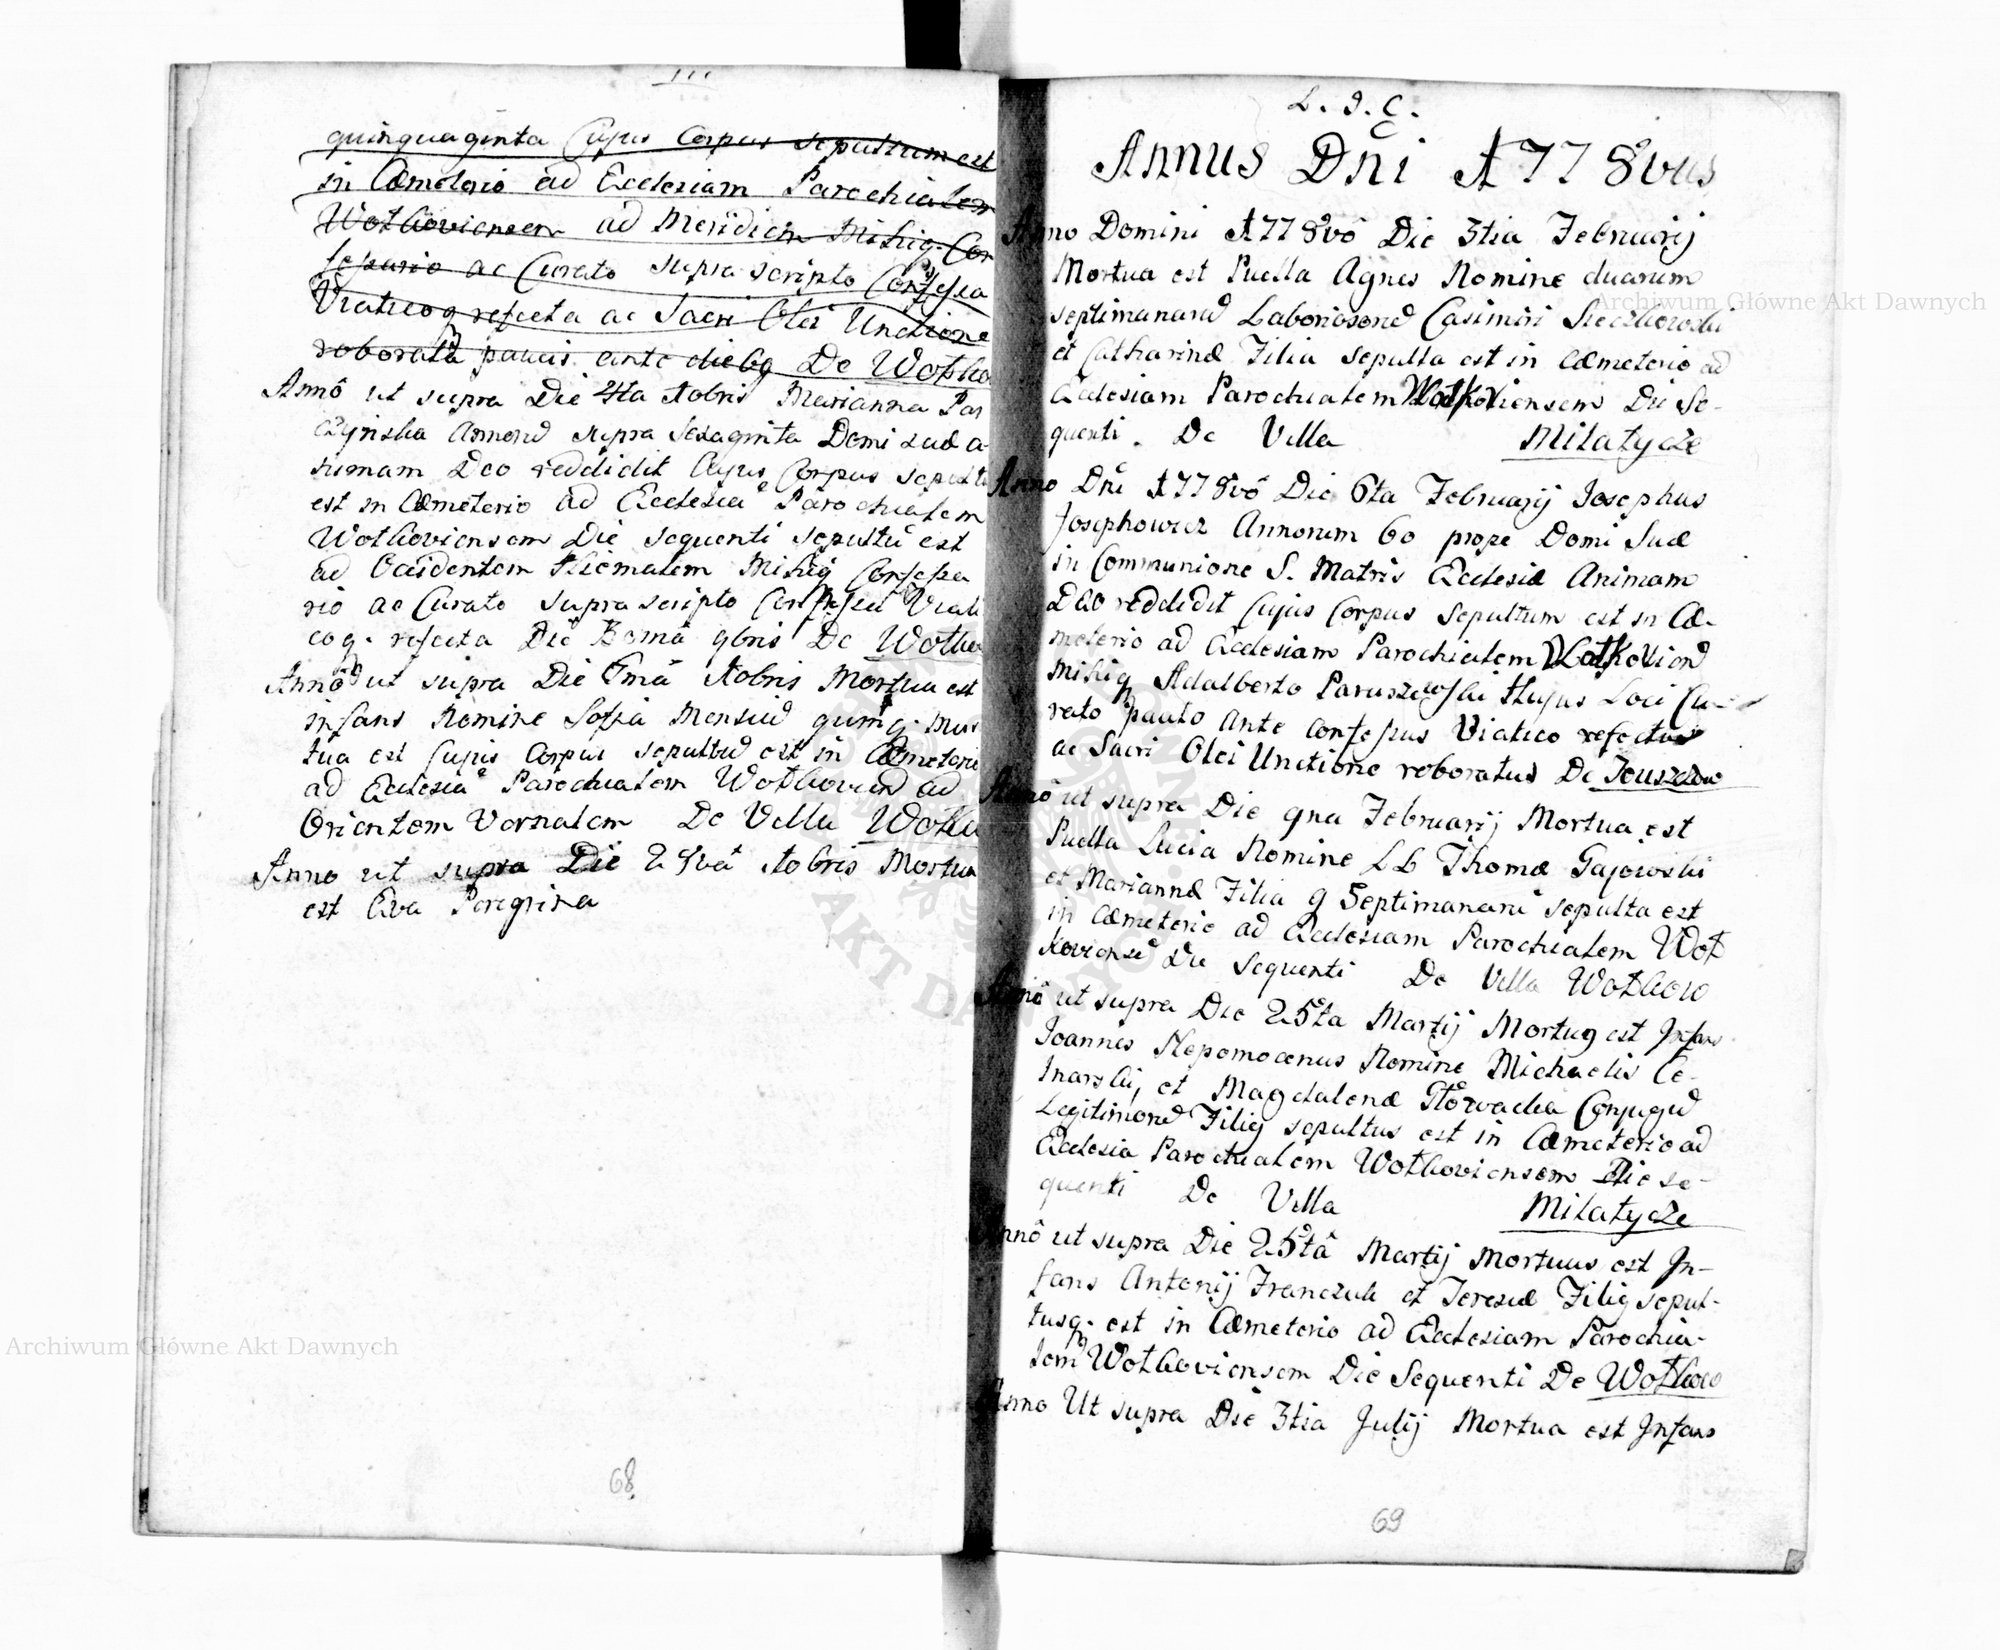 quinquaginta Cujus Corpus sepultum est
in Cæmeterio ad Ecclesiam Parochialem
Wołkoviensem ad Meridiem Mihiq. Con
fessario ac Curato supra scripto Confessa
Viaticoq refecta ac Sacri Olei Unctione
roborata paucis ante diebg De Wołko
Annô ut supra Die 4ta Xbris Marianna
Annorū supra Sexaginta Domi suæ a-
nimam Deo reddidit Cujus Corpus sepultū
est in Cæmeterio ad Ecclesiā Parochialem
Wołkoviensem Die sequenti sepultū est
ad Occidentem Hiemalem Mihiq Confessa
rio ac Curato supra scripto Confessa Viati
coq. refecta Die 9bris De Wołko
Annô ut supra Die Xbris Mortua est
infans Nomine Sofia Mensiū quinq. Mor
tua est Cujus Corpus sepultū est in Cæmeterio
ad Ecclesiā Parochialem Wołkovien ad
Orientem Vernalem De Villa Wołko
Anno ut supra Die 28va Xbris Mortua
est Eva Peregrina
68.
L. I. C.
Annus Dñi 1778vus
Anno Domini 1778vô Die 3tia Februarij
Mortua est Puella Agnes Nomine duarum
septimanarū Laboriosorū Casimiri
et Catharinæ Filia sepulta est in Cæmeterio ad
Ecclesiam Parochialem Wołkoviensem Die Se-
quenti. De Villa Miłatycze
Anno Dñi 1778vô Die 6ta Februarij Josephus
Josephowicz Annorum 60 prope Domi Suæ
in Communione S. Matris Ecclesiæ Animam
Deo reddidit Cujus Corpus Sepultum est in Cæ-
meterio ad Ecclesiam Parochialem
Mihiq Adalberto Paruszewski Hujus Loci Cu-
rato paulo ante confessus Viatico refectus
ac Sacri Olei Unctione roboratus De
Annô ut supra Die 9na Februarij Mortua est
Puella Lucia Nomine LL Thomæ Gajowski
et Mariannæ Filia 9 Septimanarū sepulta est
in Cæmeterio ad Ecclesiam Parochialem Woł
koviensē Die Sequenti De Villa Wołkow
Annô ut supra Die 25ta Martij Mortug est Infans
Joannes Nepomocenus Nomine Michaelis Ce-
et Magdalenæ Conjugū
Legitimorū Filig sepultus est in Cæmeterio ad
Ecclesia Parochialem Wołkoviensem Die se-
quenti De Villa Miłatycze
Annô ut supra Die 25tâ Martij Mortuus est In-
fans Antonij Franczuk et Teresiæ Filig sepul-
tusq. est in Cæmeterio ad Ecclesiam Parochia-
lem Wołkoviensem Die Sequenti De Wołkow
Anno Ut supra Die 3tia Julij Mortua est Infans
69
Archiwum Główne Akt Dawnych
Archiwum Główne Akt Dawnych